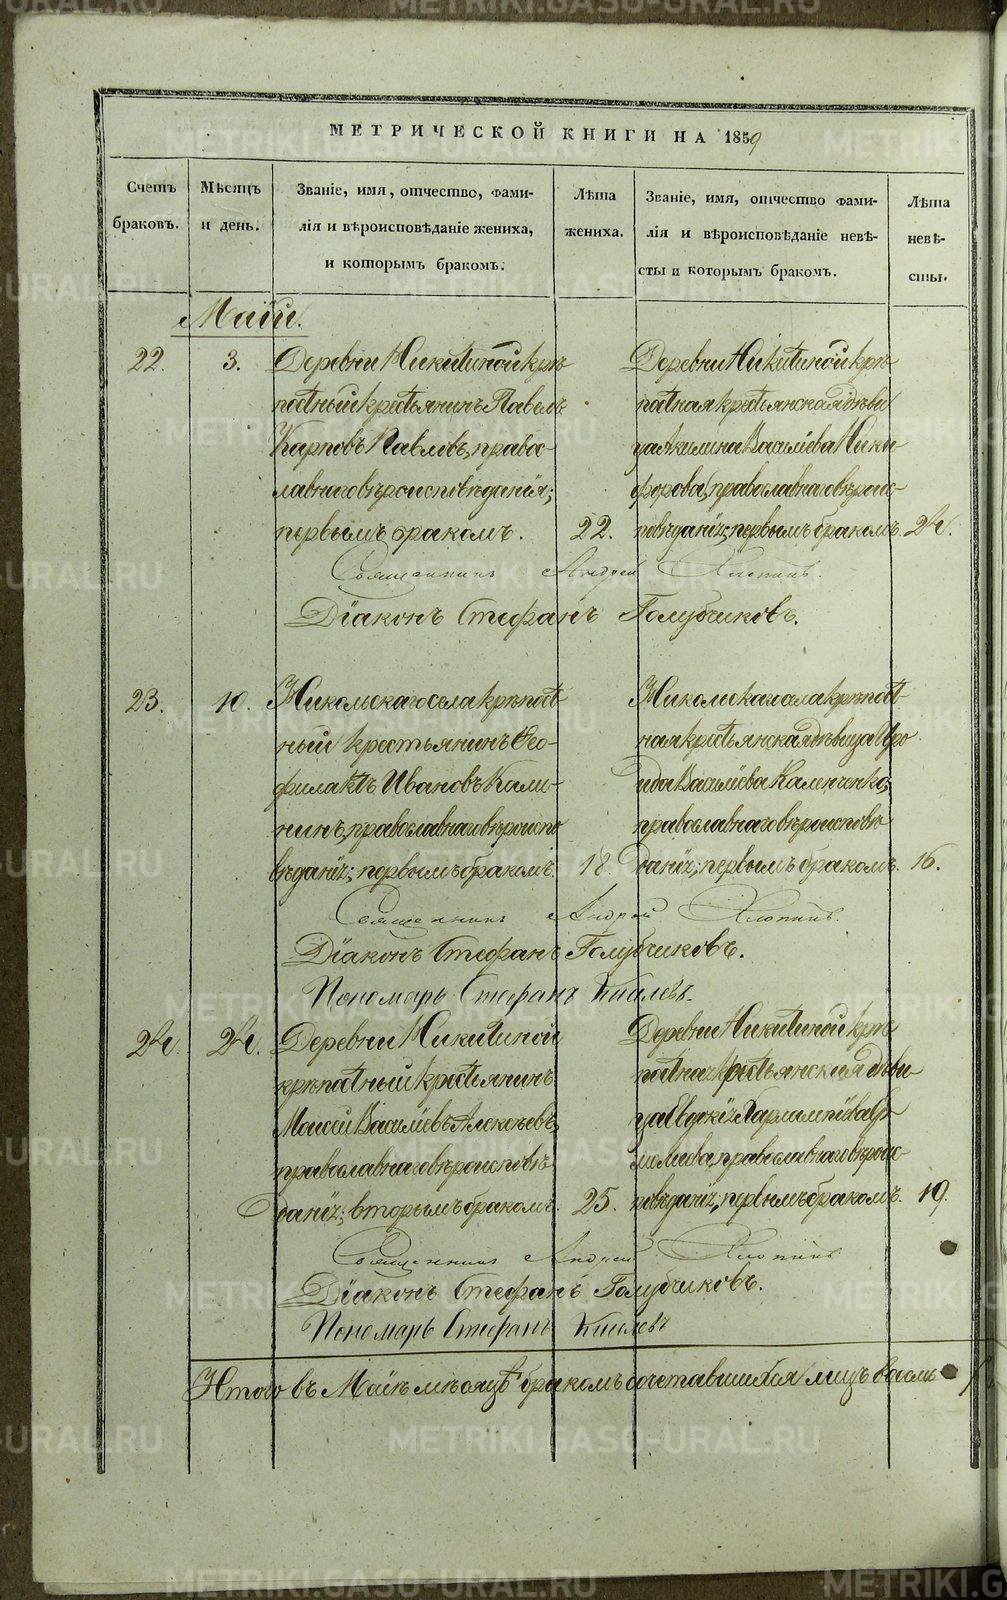 МЕТРИЧЕСКОЙ КНИГИ НА 1859
Счетъ браковъ.
Мѣсяцъ и день.
Званіе, имя, отчество, фами-
лія и вѣроисповѣданіе жениха,
и которымъ бракомъ.
Лѣта жениха.
Званіе, имя, отчество фами-
лія и вѣроисповѣданіе невѣ-
сты и которымъ бракомъ.
Лѣта невѣ-
сты.
Маій.
22. 3.
Деревни Никитиной крѣ-
постный крестьянинъ Павелъ
Карповъ Павловъ, правос-
лавнаго вѣроисповѣданія;
первымъ бракомъ. 22.
Деревни Никитиной крѣ-
постная крестьянская дѣви
ца Акилина Василіева Ники
форова, православнаго вѣроис-
повѣданія; первымъ бракомъ. 21.
Священникъ Андрей Хлопинъ.
Діаконъ Стефанъ Голубчиковъ.
23. 10.
Никольскаго села крѣпост
ный крестьянинъ Фео-
филактъ Ивановъ Кали-
нинъ, православнаго вѣроиспо
вѣданія; первымъ бракомъ. 18.
Николскаго села крѣпост
ная крестьянская дѣвица Иро
ида Василіева
православнаго вѣроисповѣ
данія; первымъ бракомъ. 16.
Священникъ Андрей Хлопинъ.
Діаконъ Стефанъ Голубчиковъ.
Пономарь Стефанъ
24. 24.
Деревни Никитиной
крѣпостный крестьянинъ
Моисей Василіевъ Алексѣевъ,
православнаго вѣроисповѣ
данія; вторымъ бракомъ. 25.
Деревни Никитиной крѣ
постная крестьянская дѣви-
ца Евдокія Харлампіева Ер
молаева, православнаго вѣроис-
повѣданія, первымъ бракомъ. 19.
Священникъ Андрей Хлопинъ
Діаконъ Стефанъ Голубчиковъ.
Пономарь Стефанъ
Итого въ Маіѣ мѣсяцѣ бракомъ сочетавшихся лицъ восмь
METRIKI.GASO-URAL.RU